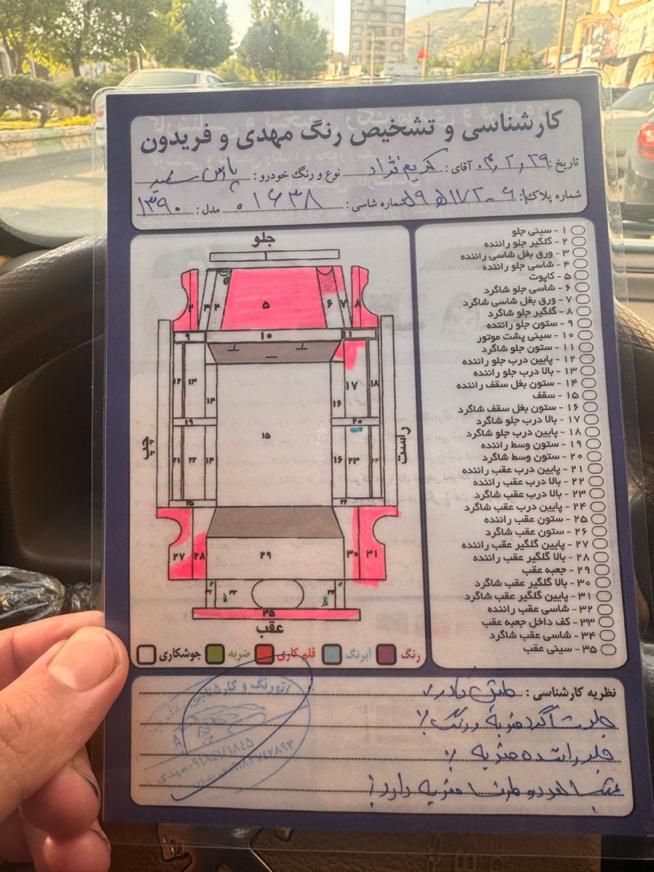 کارشناسی و تشخیص رنگ مهدی و فریدون
تاریخ: ۰۴٫۲٫۲۹ آقای: کریم نژاد نوع و رنگ خودرو: پارس سفید
شماره پلاک: شماره شاسی: ۰۱۶۳۸ مدل: ۱۳۹۰
جلو
چپ
راست
عقب
۲ ۳ ۴ ۵ ۶ ۷ ۸
۹ ۱۰ ۱۱
۱۲ ۱۳ ۱۴ ۱۵ ۱۶ ۱۷ ۱۸
۱۹ ۲۰
۲۱ ۲۲ ۱۴ ۱۶ ۲۳
۲۵
۲۷ ۲۸ ۲۹ ۳۰ ۳۱
۳۵
رنگ
آبرنگ
قلم کاری
ضربه
جوشکاری
۱ - سینی جلو
۲ - گلگیر جلو راننده
۳ - ورق بغل شاسی راننده
۴ - شاسی جلو راننده
۵ - کاپوت
۶ - شاسی جلو شاگرد
۷ - ورق بغل شاسی شاگرد
۸ - گلگیر جلو شاگرد
۹ - ستون جلو راننده
۱۰ - سینی پشت موتور
۱۱ - ستون جلو شاگرد
۱۲ - پایین درب جلو راننده
۱۳ - بالا درب جلو راننده
۱۴ - ستون بغل سقف راننده
۱۵ - سقف
۱۶ - ستون بغل سقف شاگرد
۱۷ - بالا درب جلو شاگرد
۱۸ - پایین درب جلو شاگرد
۱۹ - ستون وسط راننده
۲۰ - ستون وسط شاگرد
۲۱ - پایین درب عقب راننده
۲۲ - بالا درب عقب راننده
۲۳ - بالا درب عقب شاگرد
۲۴ - پایین درب عقب شاگرد
۲۵ - ستون عقب راننده
۲۶ - ستون عقب شاگرد
۲۷ - پایین گلگیر عقب راننده
۲۸ - بالا گلگیر عقب راننده
۲۹ - جعبه عقب
۳۰ - بالا گلگیر عقب شاگرد
۳۱ - پایین گلگیر عقب شاگرد
۳۲ - شاسی عقب راننده
۳۳ - کف داخل جعبه عقب
۳۴ - شاسی عقب شاگرد
۳۵ - سینی عقب
نظریه کارشناسی: طبق کادر
جلو شاگرد ضربه و رنگ
جلو راننده ضربه
عقب از دو طرف ضربه دارد